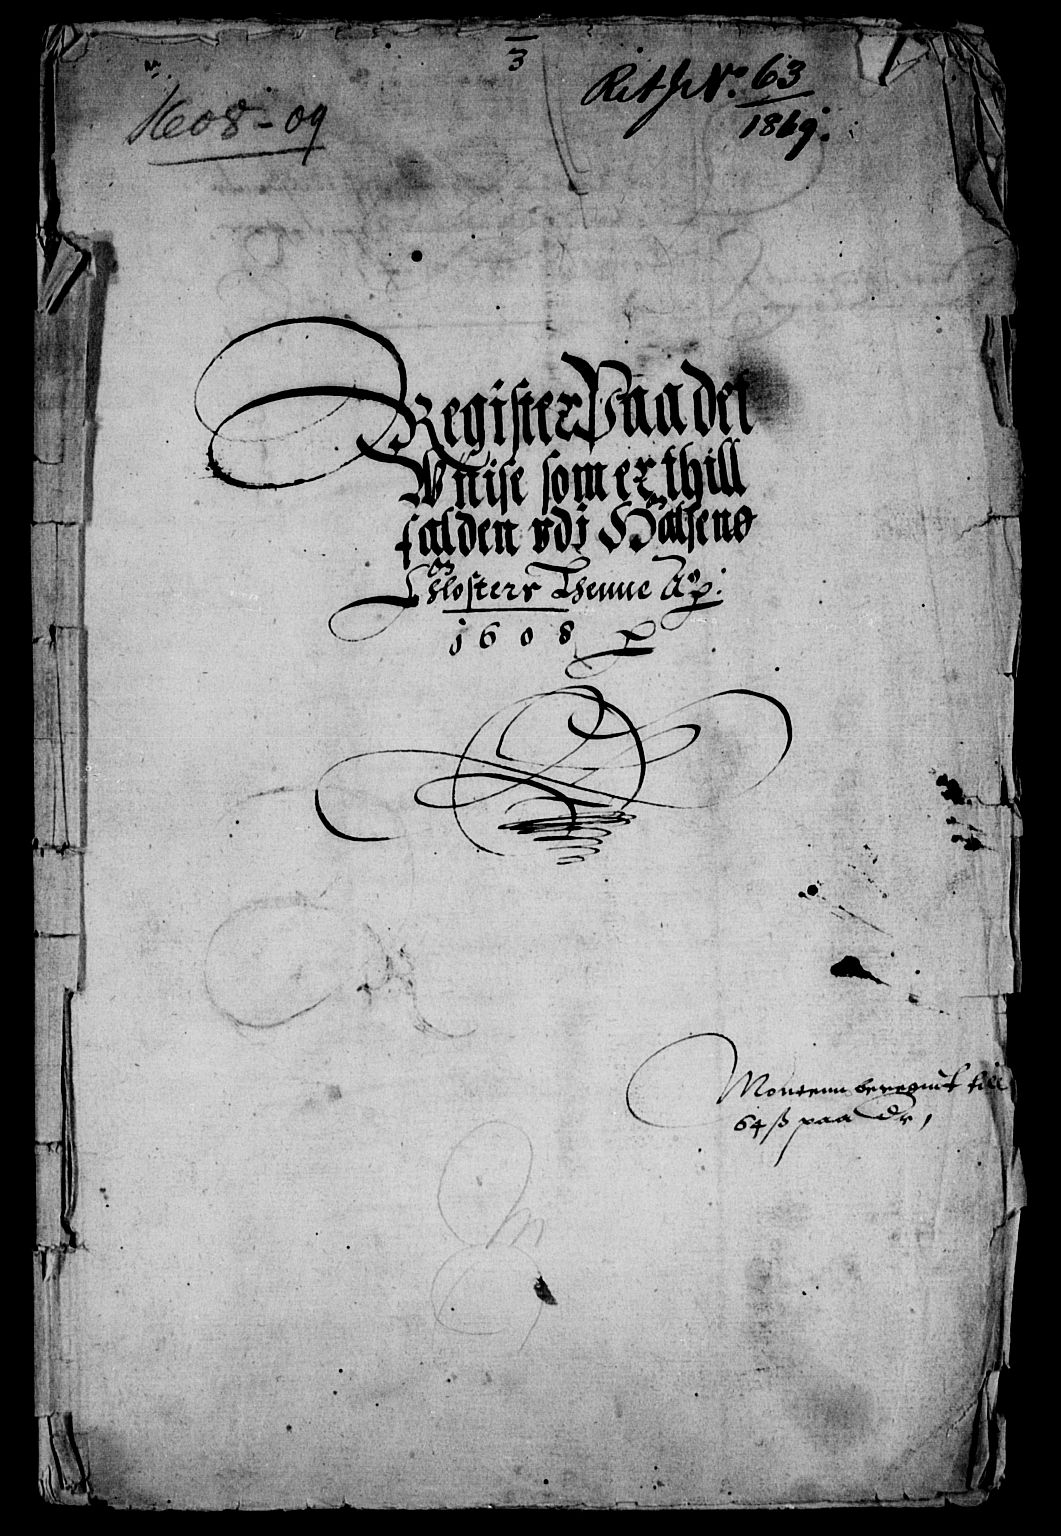 3
1608-09
No. 63
1869.
Register Paa det
Wuise som er thill
falden vdj Halsenø
Chlosters Lhenne
1608
Monten beregnit till
64 ß paa dr,